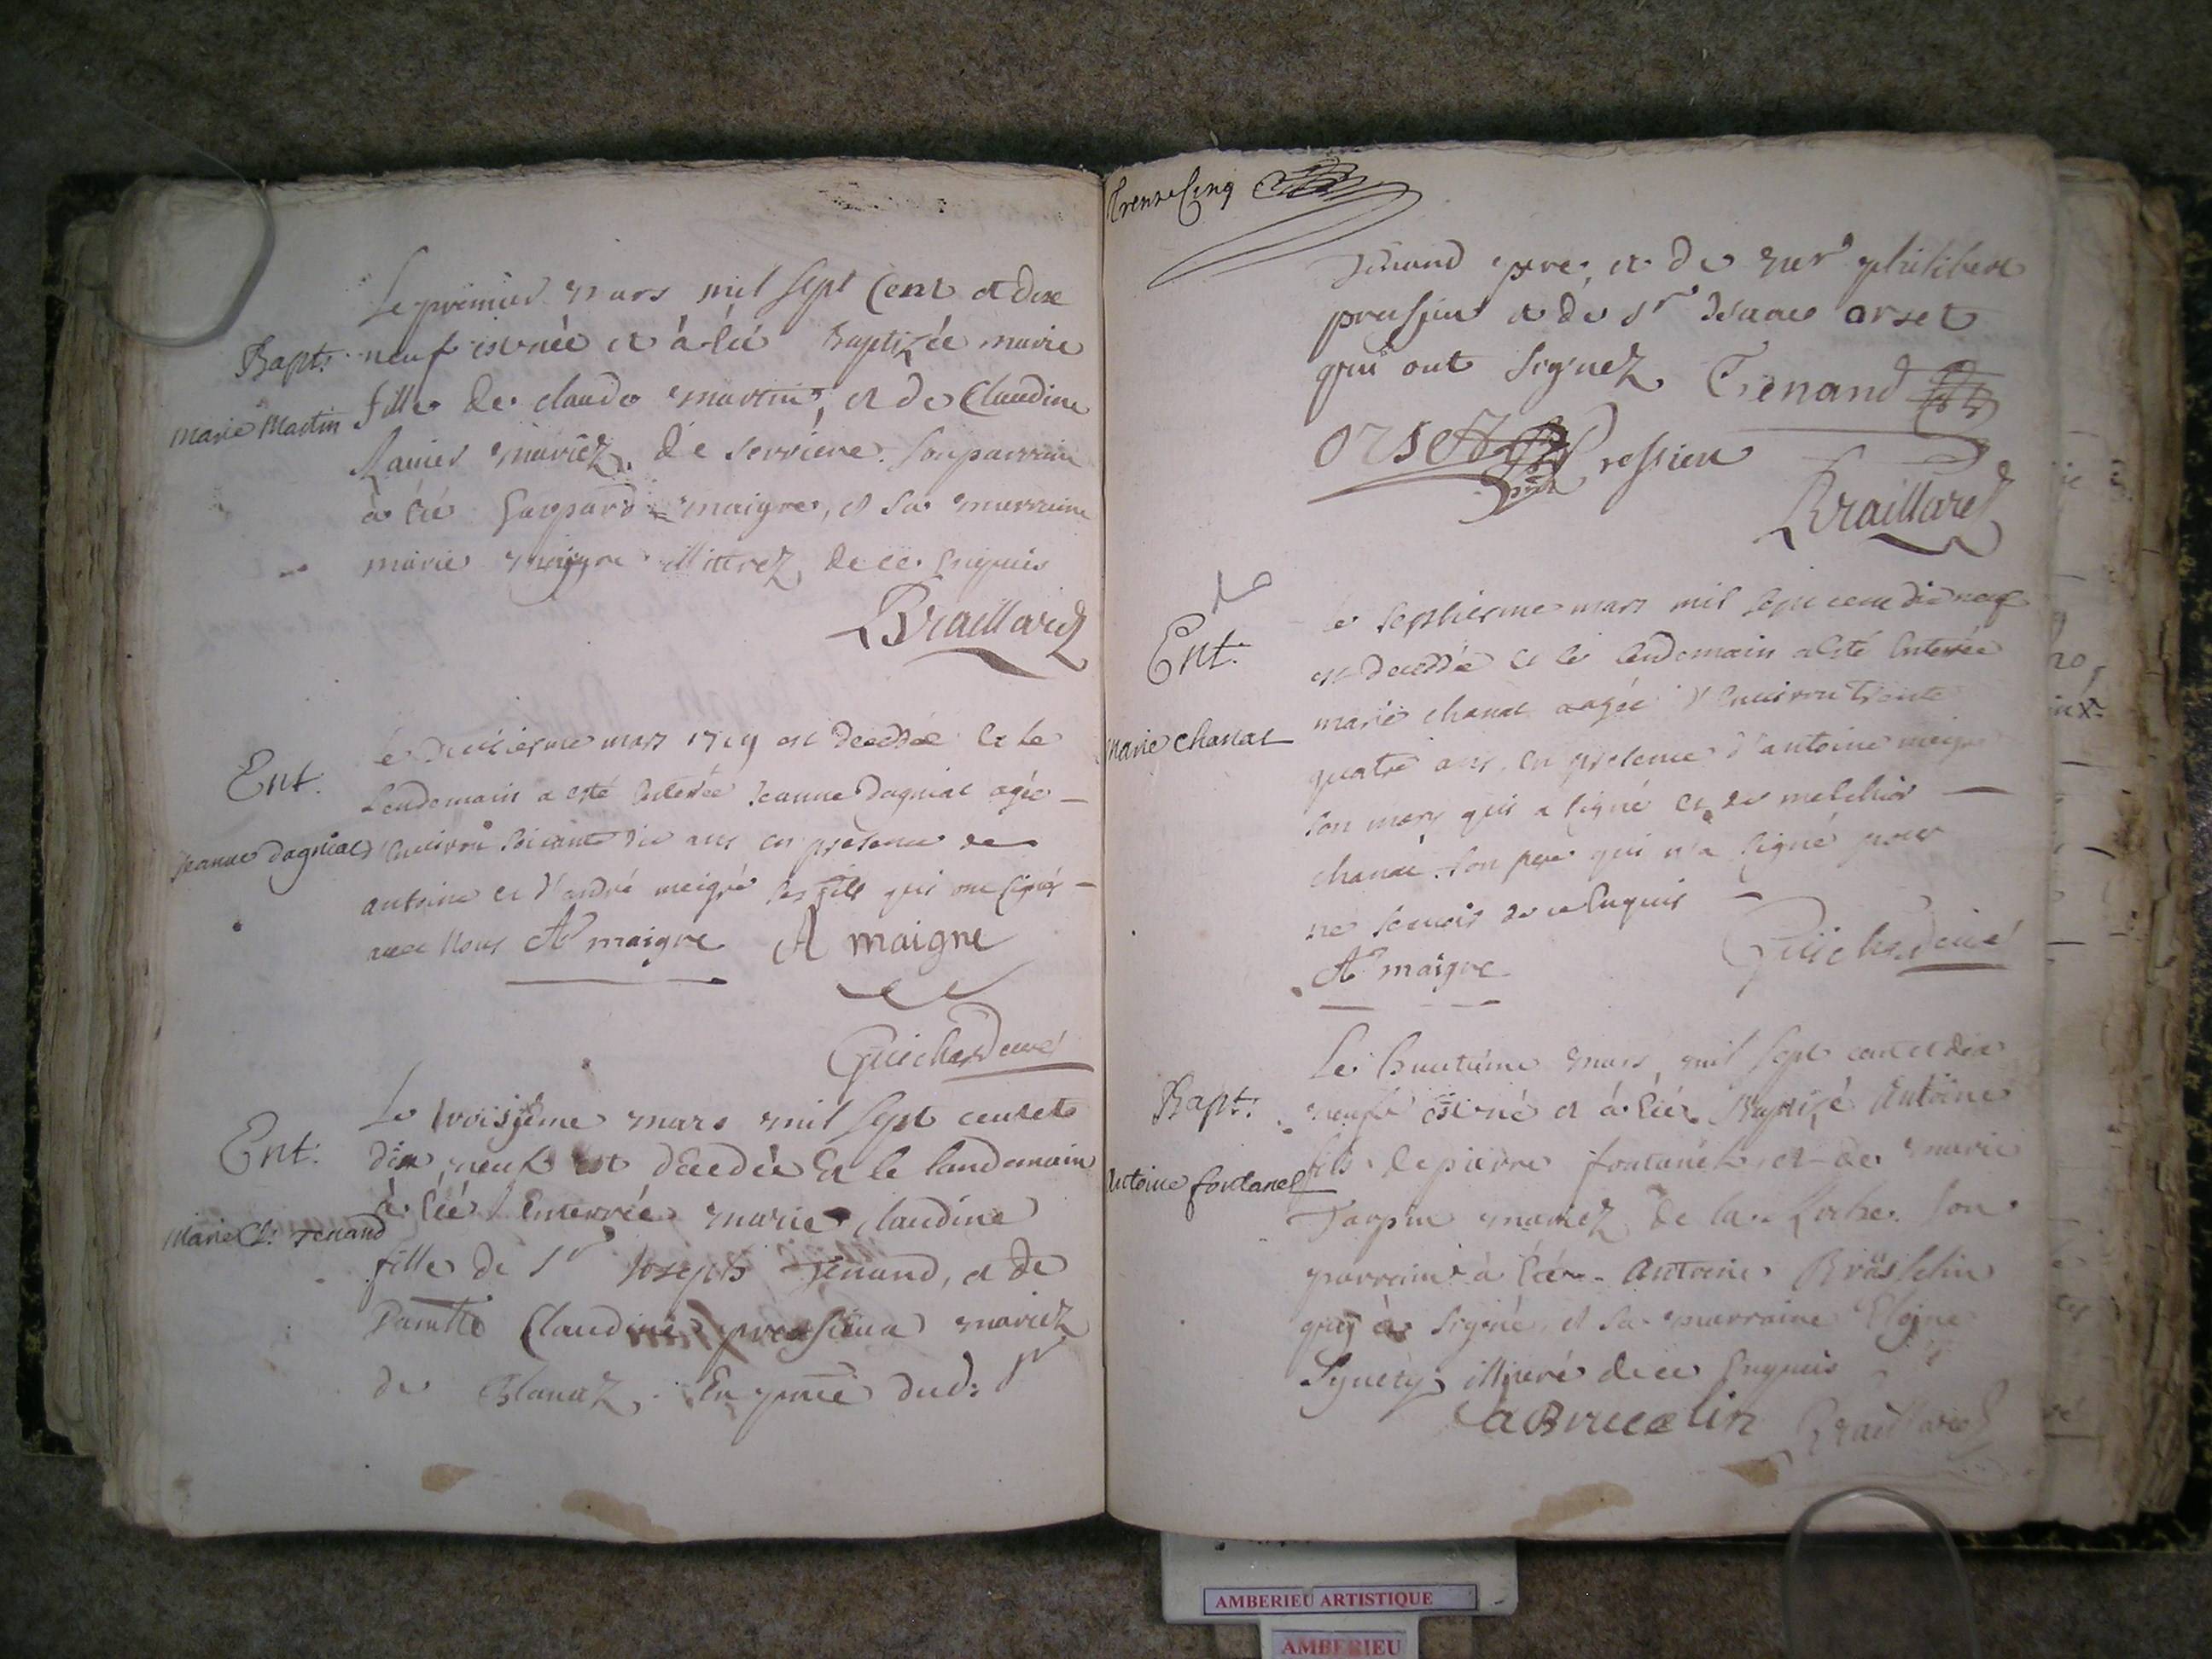 Le premier mars mil sept Cent et dixe
Bapt. neuf est née et à été Baptizée marie
Marie Martin fille de claude martin, et de Claudine
mariez, de serriere. son parrain
à été Gaspard maigre, et sa marraine
marie maigre illittrez, de ce Enquis
Braillard
le deuxiesme mars 1719 est decedée et le
Ent.
Lendemain a esté Enterrée Jeanne Dagniat agée
Jeanne Dagniat d'Environ soixante dix ans en presence de
antoine et d'andré meigre ses fils qui ont signés
avec Nous At maigre A maigre
Guichard curé
Le troisjême mars mil sept centet
Ent. dix neuf est décedée Et le landemain
à été Enterrée marie claudine
Marie Cl. Tenand
fille de Sr Joseph Tenand, et de
Claudine pressieux mariez
de Blanaz, En pnce dud: Sr
Trente Cinq
Tenand pere, et de philibert
pressieu et de Sr Isaac orset
qui ont signez. Tenand
orset Pressieu
Braillard
le septiesme mars mil sept cent dix neuf
Ent.
est decedée et le lendemain a esté Enterée
Marie Chanal
marie chanal aagée d'Environ trente
quatre ans, en presence d'antoine meigre
son mary qui a signé et de melchior
chanal son pere qui n'a signé pour
ne scavoir de ce Enquis
At maigre Guichard curé
Le huitiême mars, mil sept cent et dix
Bapt. neufe est né et à été Baptizé Antoine
Antoine fontanel fils de pierre fontanel, et de marie
mariez de la Roche. son
parrain à été Antoine
qui à signé, et sa marraine
illitteré de ce Enquis
a Brucelin Braillard
AMBERIEU ARTISTIQUE
AMBERIEU